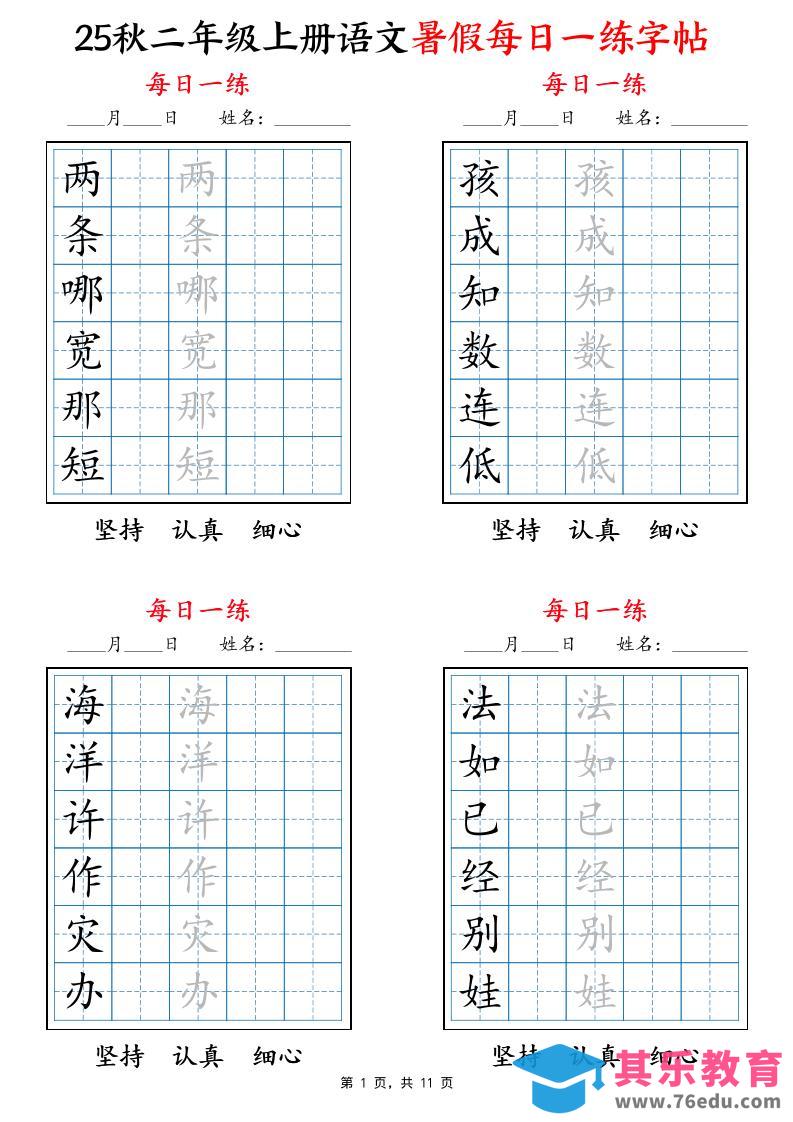 25秋二年级上册语文暑假每日一练字帖
每日一练
____月____日 姓名：________
两 两
条 条
哪 哪
宽 宽
那 那
短 短
坚持 认真 细心
每日一练
____月____日 姓名：________
孩 孩
成 成
知 知
数 数
连 连
低 低
坚持 认真 细心
每日一练
____月____日 姓名：________
海 海
洋 洋
许 许
作 作
灾 灾
办 办
坚持 认真 细心
每日一练
____月____日 姓名：________
法 法
如 如
已 已
经 经
别 别
娃 娃
坚持 认真 细心
第 1 页，共 11 页
其乐教育
www.76edu.com